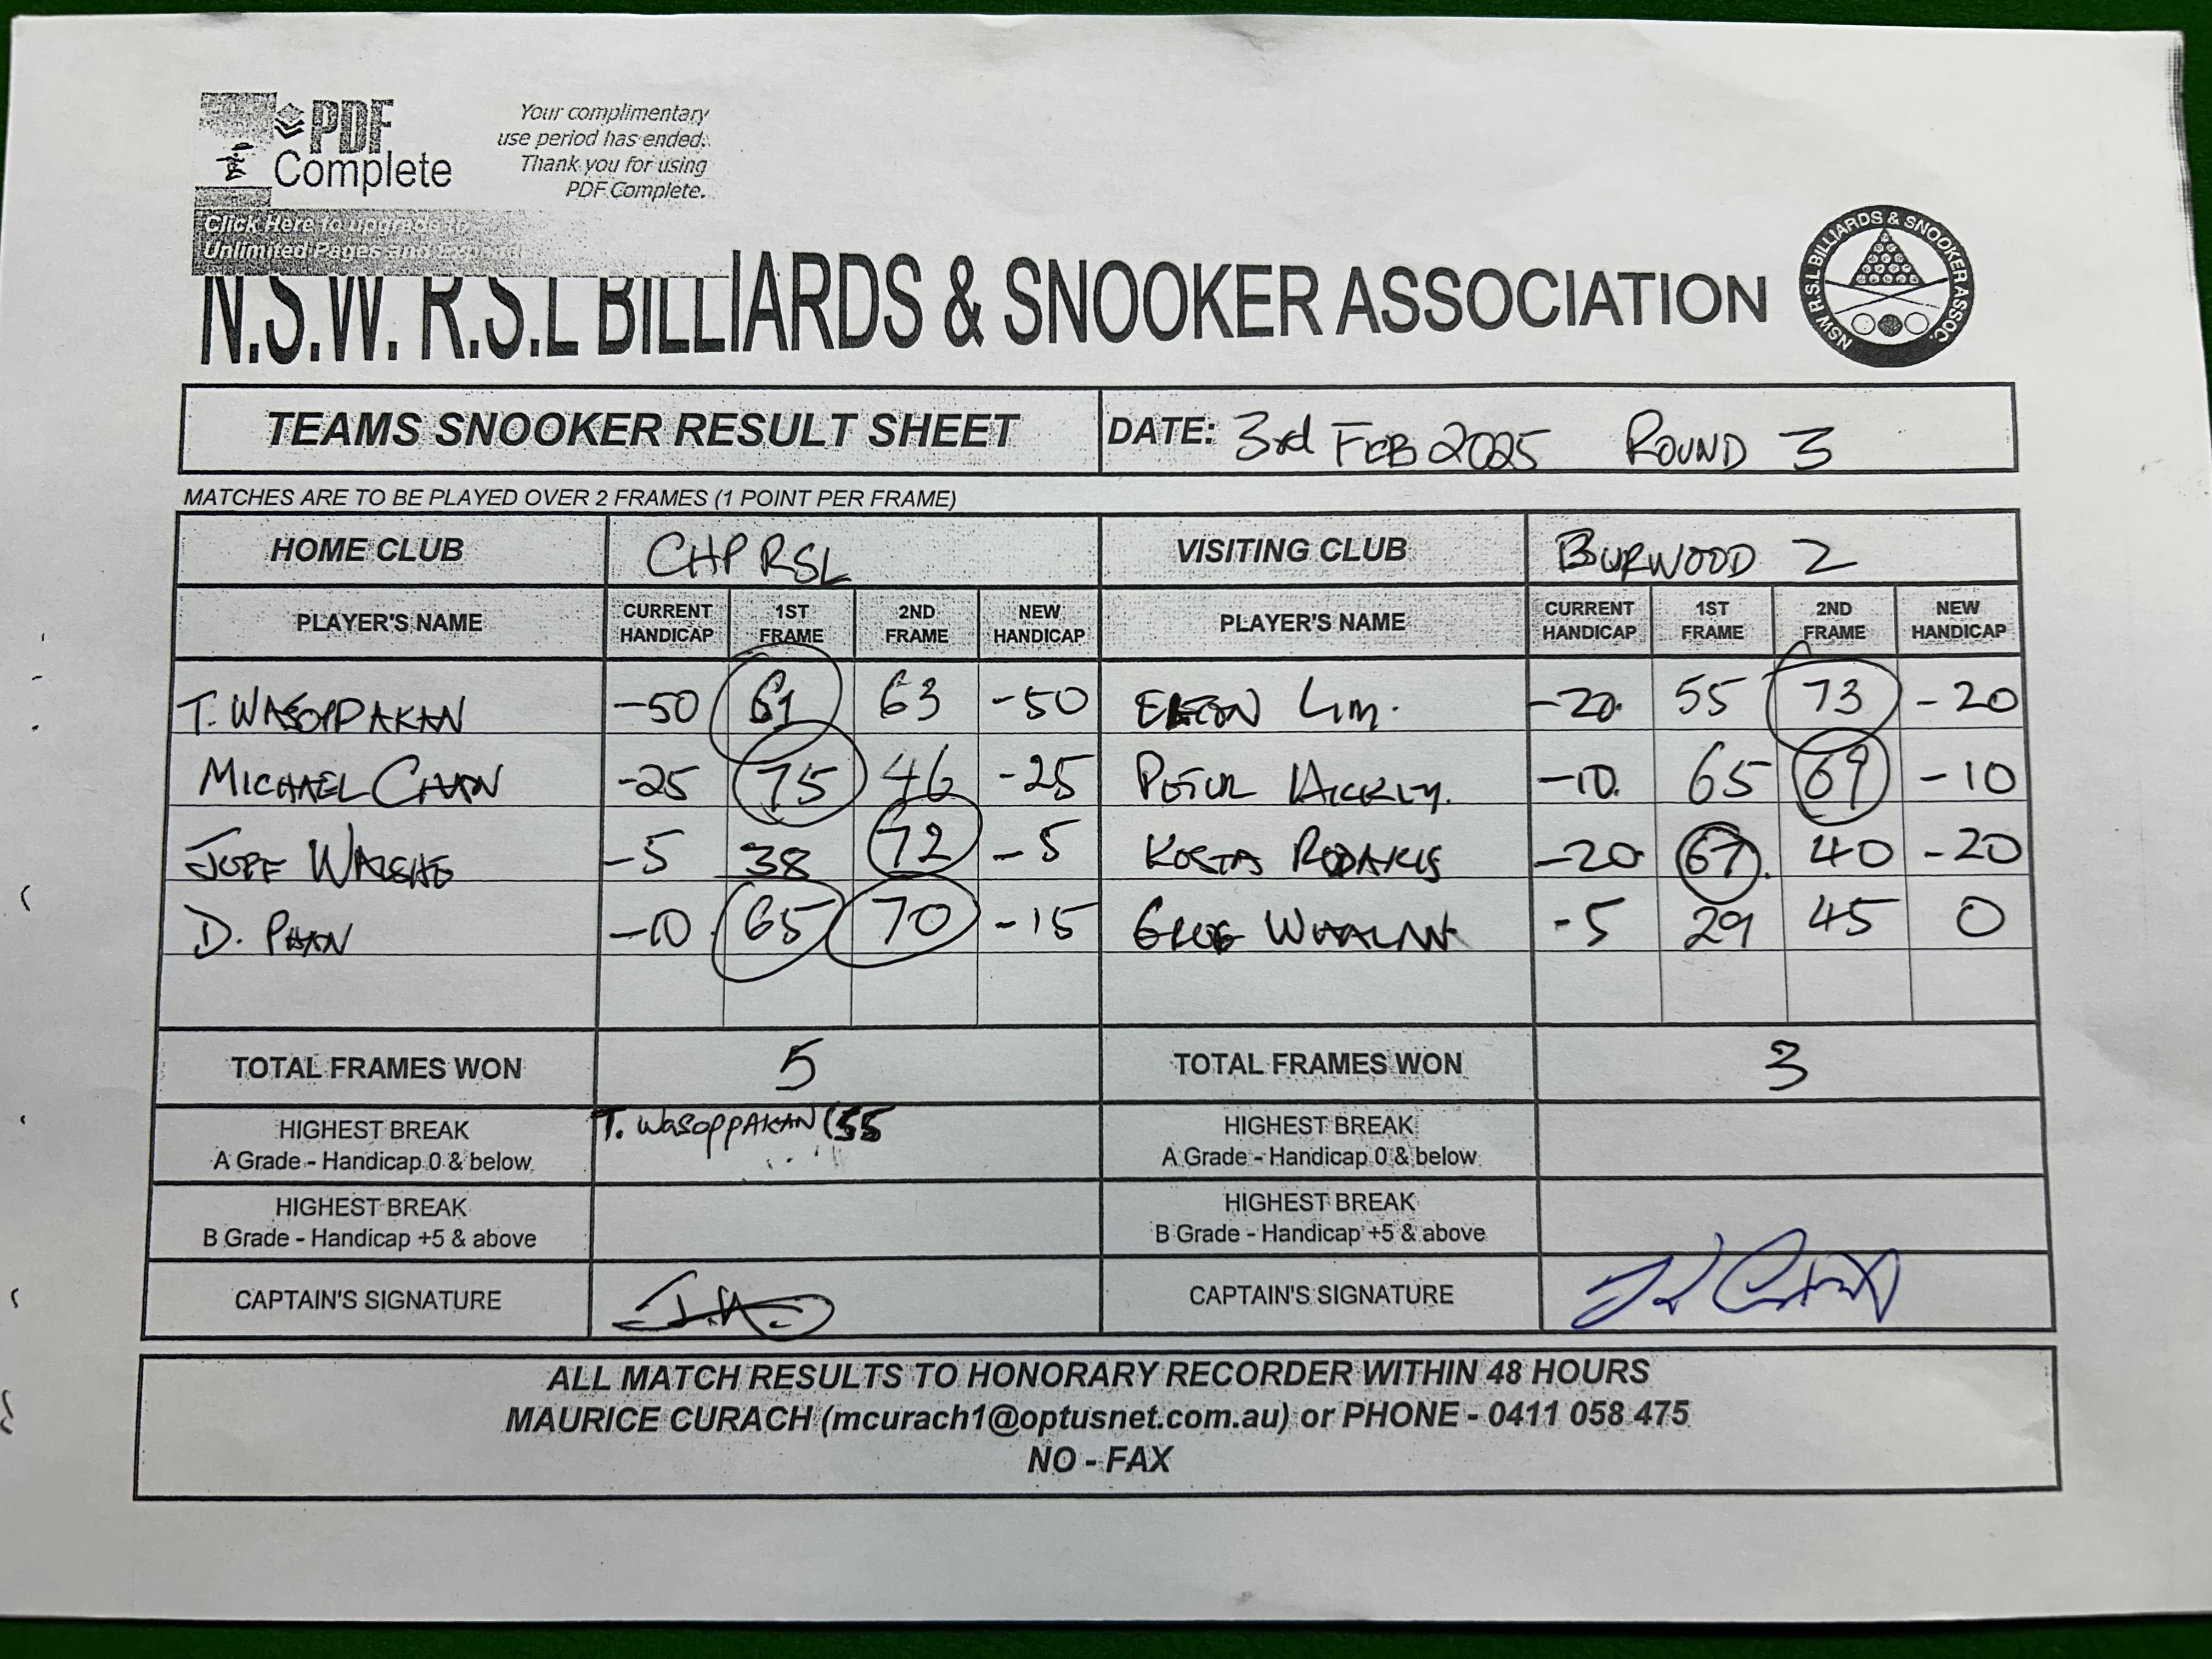 PDF Complete
Your complimentary
use period has ended.
Thank you for using
PDF Complete.
Click Here to upgrade to
Unlimited Pages and
N.S.W. R.S.L BILLIARDS & SNOOKER ASSOCIATION
NSW R.S.L BILLIARDS & SNOOKER ASSOC.
TEAMS SNOOKER RESULT SHEET DATE: 3rd FEB 2025 ROUND 3
MATCHES ARE TO BE PLAYED OVER 2 FRAMES (1 POINT PER FRAME)
HOME CLUB CHP RSL VISITING CLUB BURWOOD 2
PLAYER'S NAME CURRENT HANDICAP 1ST FRAME 2ND FRAME NEW HANDICAP PLAYER'S NAME CURRENT HANDICAP 1ST FRAME 2ND FRAME NEW HANDICAP
T. WASOPPAKAN -50 61 63 -50 LIM. -20 55 73 -20
MICHAEL CHAN -25 75 46 -25 PETER -10 65 69 -10
JEFF WALSHE -5 38 72 -5 KOSTAS RODAKIS -20 67 40 -20
D. PHAN -10 65 70 -15 GREG WHALAN -5 29 45 0
TOTAL FRAMES WON 5 TOTAL FRAMES WON 3
HIGHEST BREAK T. WASOPPAKAN (55 HIGHEST BREAK
A Grade - Handicap 0 & below A Grade - Handicap 0 & below
HIGHEST BREAK HIGHEST BREAK
B Grade - Handicap +5 & above B Grade - Handicap +5 & above
CAPTAIN'S SIGNATURE CAPTAIN'S SIGNATURE
ALL MATCH RESULTS TO HONORARY RECORDER WITHIN 48 HOURS
MAURICE CURACH (mcurach1@optusnet.com.au) or PHONE - 0411 058 475
NO - FAX